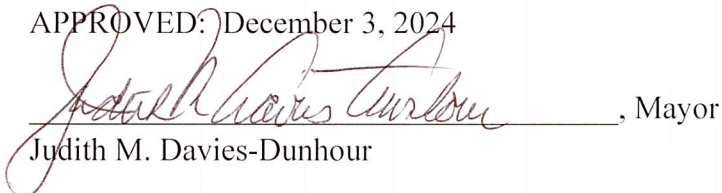 APPROVED: December 3, 2024
Judith M. Davies Dunhour, Mayor
Judith M. Davies-Dunhour